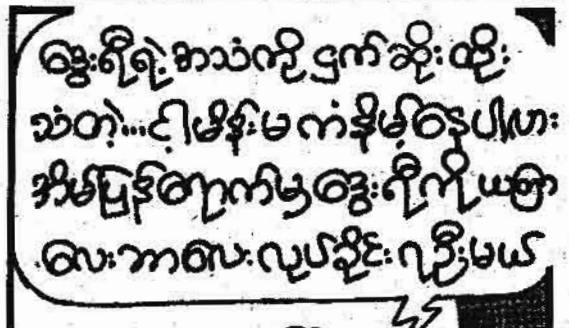 ဒွေးရီရဲ့အသံကို ငှက်ဆိုးထိုး
သံတဲ့...ငါ့မိန်းမ ကံနိမ့်နေပါလား
အိမ်ပြန်ရောက်မှ ဒွေးရီကို ယတြာ
လေးဘာလေး လုပ်ခိုင်းရဦးမယ်